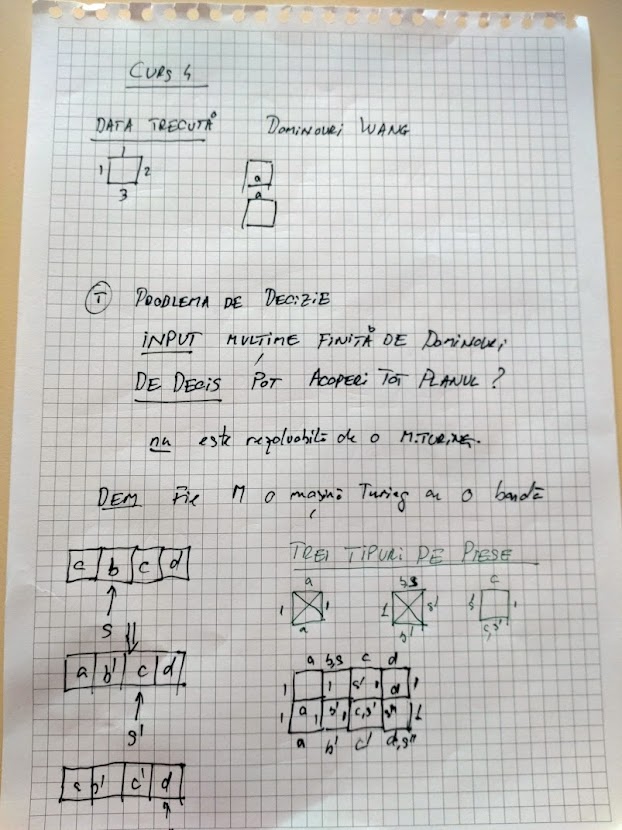 CURS 4
DATA TRECUTĂ DOMINOURI WANG
1
1 2
3
a
a
T PROBLEMA DE DECIZIE
INPUT MULȚIME FINITĂ DE DOMINOURI
DE DECIS POT ACOPERI TOT PLANUL ?
nu este rezolvabilă de o M.TURING.
DEM Fie M o mașină Turing cu o bandă
TREI TIPURI DE PIESE
a b c d
s
a b' c d
s'
a b' c' d
a b,s c
1 1 1 s' s 1
a b' c,s'
a b,s c d
1 1 s' 1 d 1
1 a 1 b' 1 c,s' s'' 1
a b' c' d,s''